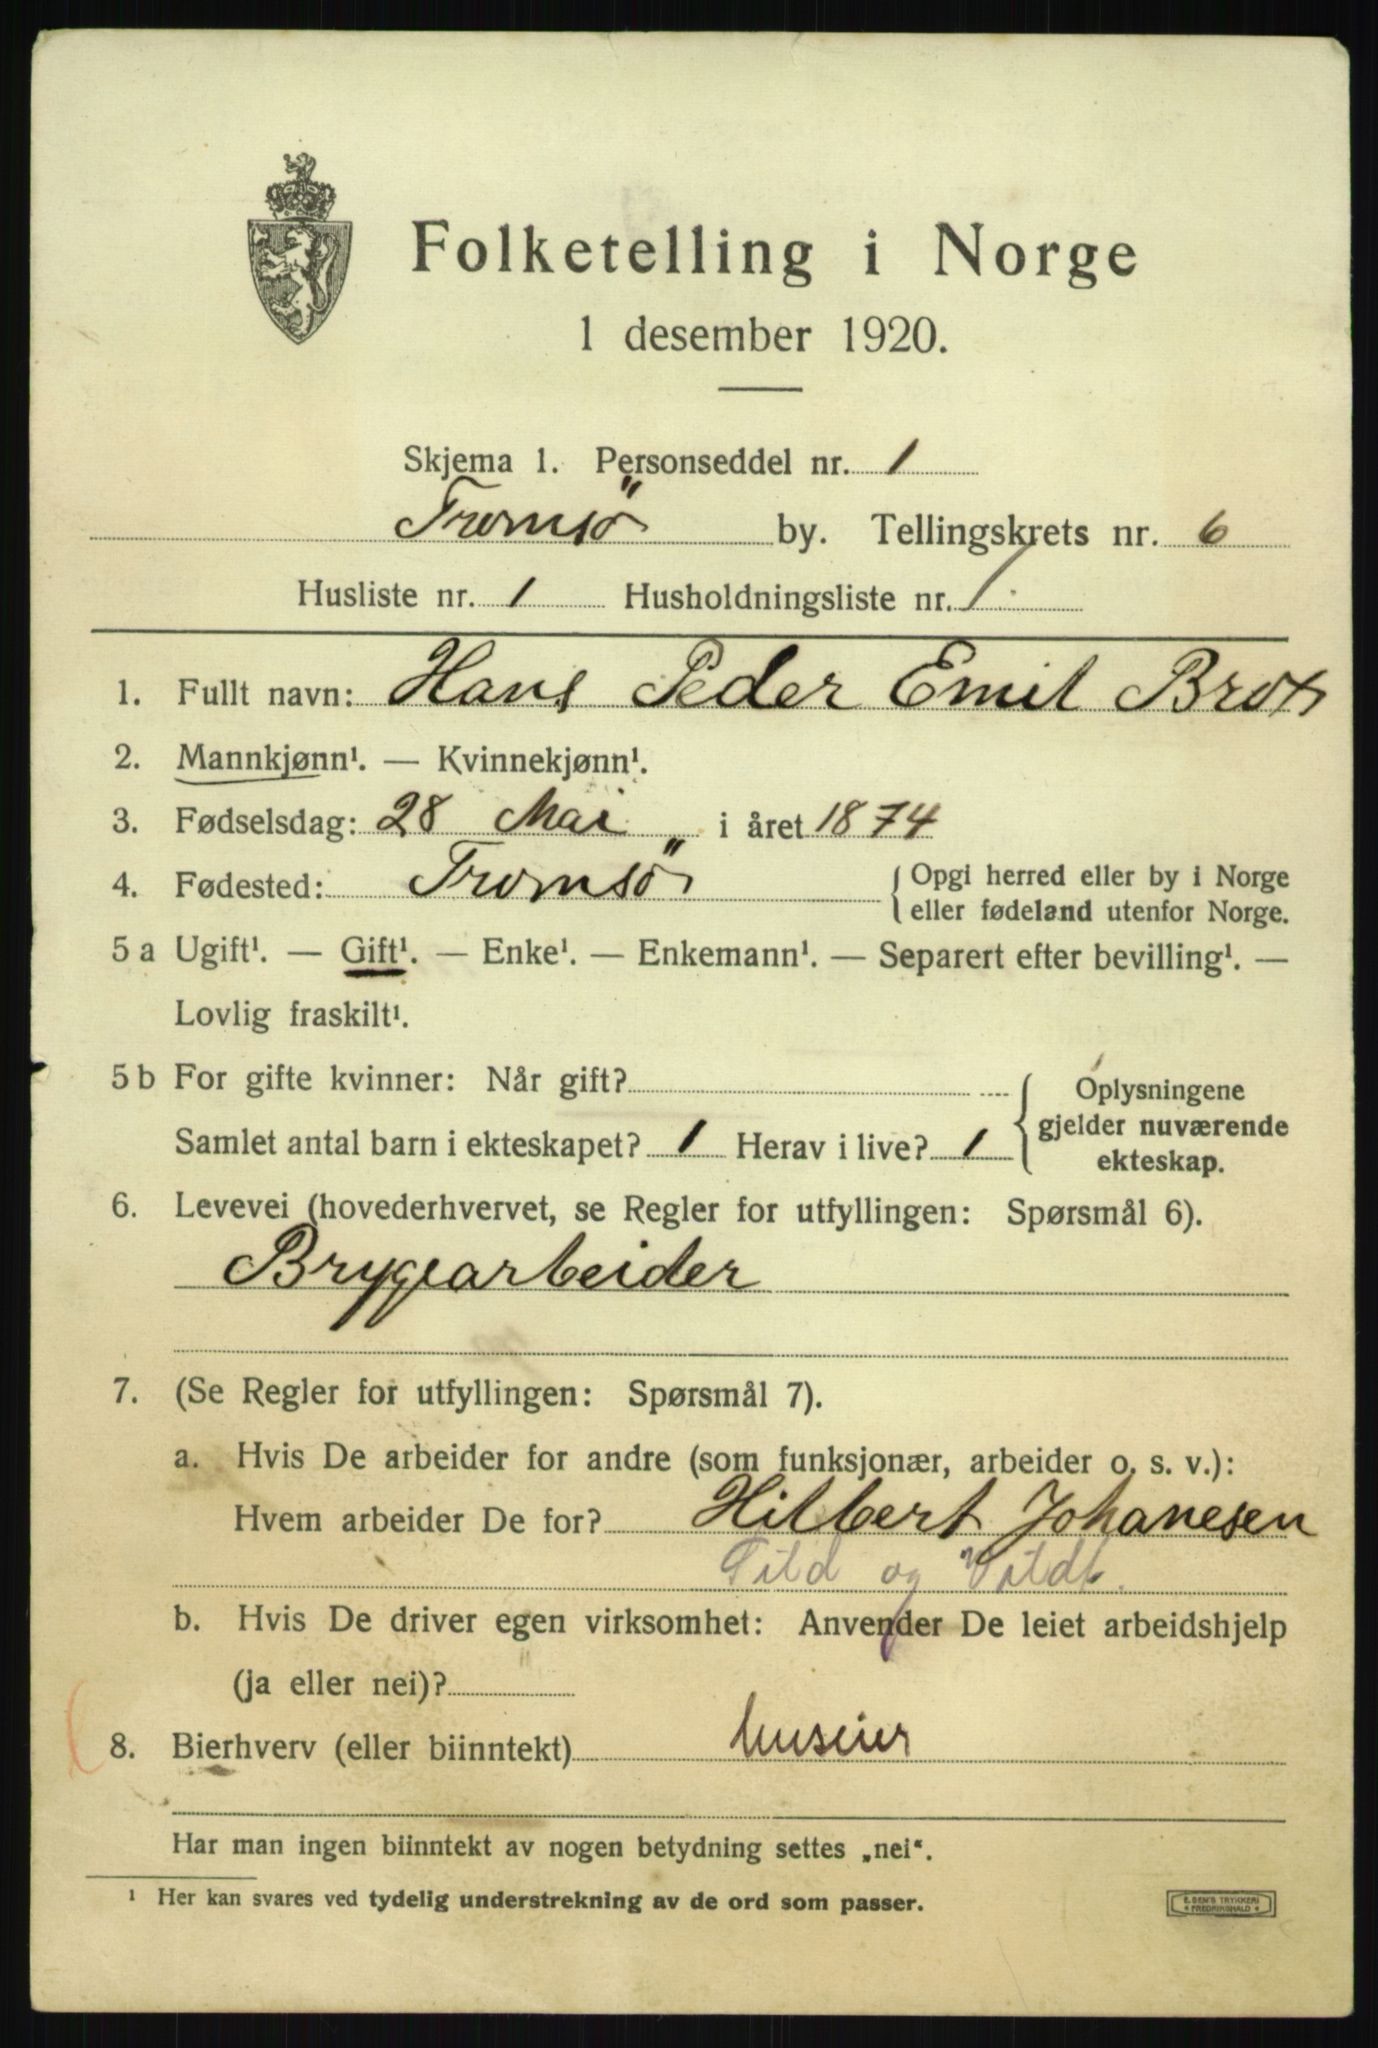 Folketelling i Norge
1 desember 1920.
Skjema 1. Personseddel nr. 1
Tromsö by. Tellingskrets nr. 6
Husliste nr. 1 Husholdningsliste nr. 1.
1. Fullt navn: Hans Peder Emil Brox
2. Mannkjønn¹. — Kvinnekjønn¹.
3. Fødselsdag: 28 Mai i året 1874
4. Fødested: Tromsö { Opgi herred eller by i Norge
eller fødeland utenfor Norge.
5 a Ugift¹. — Gift¹. — Enke¹. — Enkemann¹. — Separert efter bevilling¹. —
Lovlig fraskilt¹.
5 b For gifte kvinner: Når gift?
Samlet antal barn i ekteskapet? 1 Herav i live? 1
{ Oplysningene
gjelder nuværende
ekteskap.
6. Levevei (hovederhvervet, se Regler for utfyllingen: Spørsmål 6).
Brygearbeider
7. (Se Regler for utfyllingen: Spørsmål 7).
a. Hvis De arbeider for andre (som funksjonær, arbeider o. s. v.):
Hvem arbeider De for? Hilbert Johanesen
og
b. Hvis De driver egen virksomhet: Anvender De leiet arbeidshjelp
(ja eller nei)?
8. Bierhverv (eller biinntekt) huseier
Har man ingen biinntekt av nogen betydning settes „nei“.
¹ Her kan svares ved tydelig understrekning av de ord som passer.
E. SEM'S TRYKKERI
* FREDRIKSHALD *